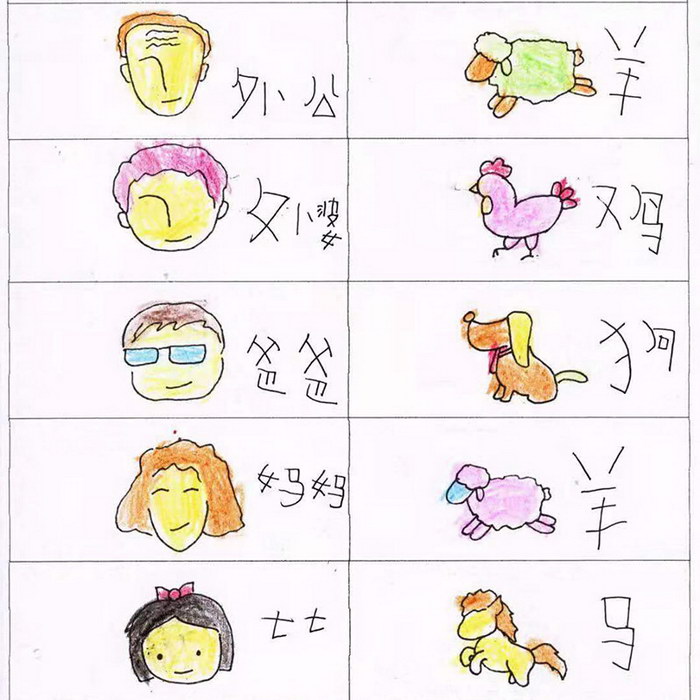 外公
羊
外婆
鸡
爸爸
狗
妈妈
羊
七七
马